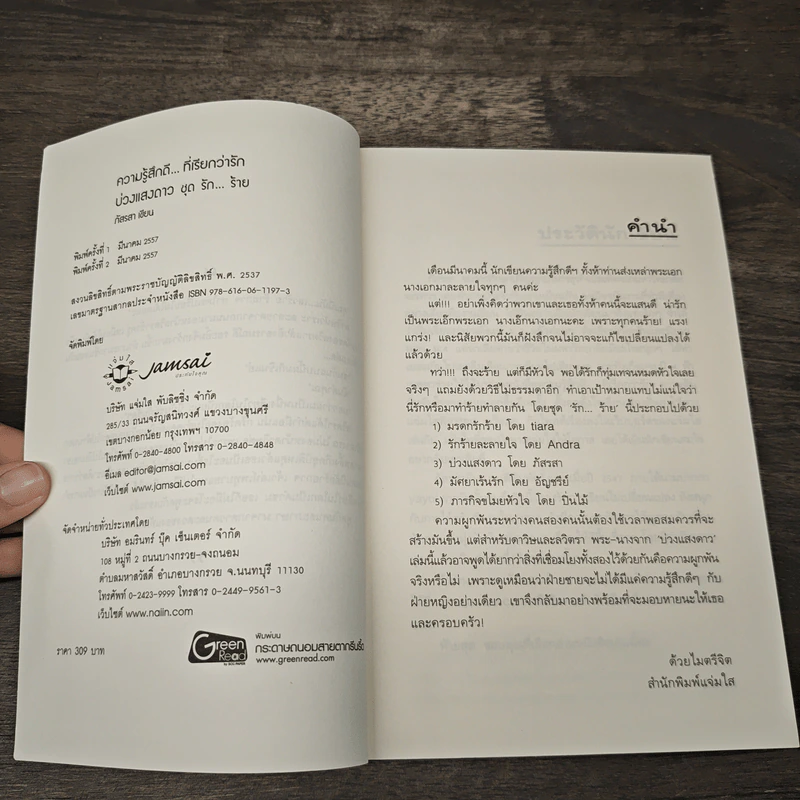 ความรู้สึกดี... ที่เรียกว่ารัก
บ่วงแสงดาว ชุด รัก... ร้าย
ภัสรสา เขียน
พิมพ์ครั้งที่ 1 มีนาคม 2557
พิมพ์ครั้งที่ 2 มีนาคม 2557
สงวนลิขสิทธิ์ตามพระราชบัญญัติลิขสิทธิ์ พ.ศ. 2537
เลขมาตรฐานสากลประจำหนังสือ ISBN 978-616-06-1197-3
จัดพิมพ์โดย
แจ่มใส
Jamsai
Jamsai
บริษัท แจ่มใส พับลิชชิ่ง จำกัด
285/33 ถนนจรัญสนิทวงศ์ แขวงบางขุนศรี
เขตบางกอกน้อย กรุงเทพฯ 10700
โทรศัพท์ 0-2840-4800 โทรสาร 0-2840-4848
อีเมล editor@jamsai.com
เว็บไซต์ www.jamsai.com
จัดจำหน่ายทั่วประเทศโดย
บริษัท อมรินทร์ บุ๊ค เซ็นเตอร์ จำกัด
108 หมู่ที่ 2 ถนนบางกรวย-จงถนอม
ตำบลมหาสวัสดิ์ อำเภอบางกรวย จ.นนทบุรี 11130
โทรศัพท์ 0-2423-9999 โทรสาร 0-2449-9561-3
เว็บไซต์ www.naiin.com
ราคา 309 บาท
Green Read
พิมพ์บน
กระดาษถนอมสายตากรีนรี้ด
www.greenread.com
คำนำ
เดือนมีนาคมนี้ นักเขียนความรู้สึกดีฯ ทั้งห้าท่านส่งเหล่าพระเอก
นางเอกมาละลายใจทุกๆ คนค่ะ
แต่!!! อย่าเพิ่งคิดว่าพวกเขาและเธอทั้งห้าคนนี้จะแสนดี น่ารัก
เป็นพระเอ๊กพระเอก นางเอ๊กนางเอกนะคะ เพราะทุกคนร้าย! แรง!
แกร่ง! และนิสัยพวกนี้มันก็ฝังลึกจนไม่อาจจะแก้ไขเปลี่ยนแปลงได้
แล้วด้วย
ทว่า!!! ถึงจะร้าย แต่ก็มีหัวใจ พอได้รักก็ทุ่มเทจนหมดหัวใจเลย
จริงๆ แถมยังด้วยวิธีไม่ธรรมดาอีก ทำเอาเป้าหมายแทบไม่แน่ใจว่า
นี่รักหรือมาทำร้ายทำลายกัน โดยชุด 'รัก... ร้าย' นี้ประกอบไปด้วย
1) มรดกรักร้าย โดย tiara
2) รักร้ายละลายใจ โดย Andra
3) บ่วงแสงดาว โดย ภัสรสา
4) มัศยาเร้นรัก โดย อัญชรีย์
5) ภารกิจขโมยหัวใจ โดย ปิ่นไม้
ความผูกพันระหว่างคนสองคนนั้นต้องใช้เวลาพอสมควรที่จะ
สร้างมันขึ้น แต่สำหรับดาวิษและลวิตรา พระ-นางจาก 'บ่วงแสงดาว'
เล่มนี้แล้วอาจพูดได้ยากว่าสิ่งที่เชื่อมโยงทั้งสองไว้ด้วยกันคือความผูกพัน
จริงหรือไม่ เพราะดูเหมือนว่าฝ่ายชายจะไม่ได้มีแค่ความรู้สึกดีๆ กับ
ฝ่ายหญิงอย่างเดียว เขาจึงกลับมาอย่างพร้อมที่จะมอบหายนะให้เธอ
และครอบครัว!
ด้วยไมตรีจิต
สำนักพิมพ์แจ่มใส